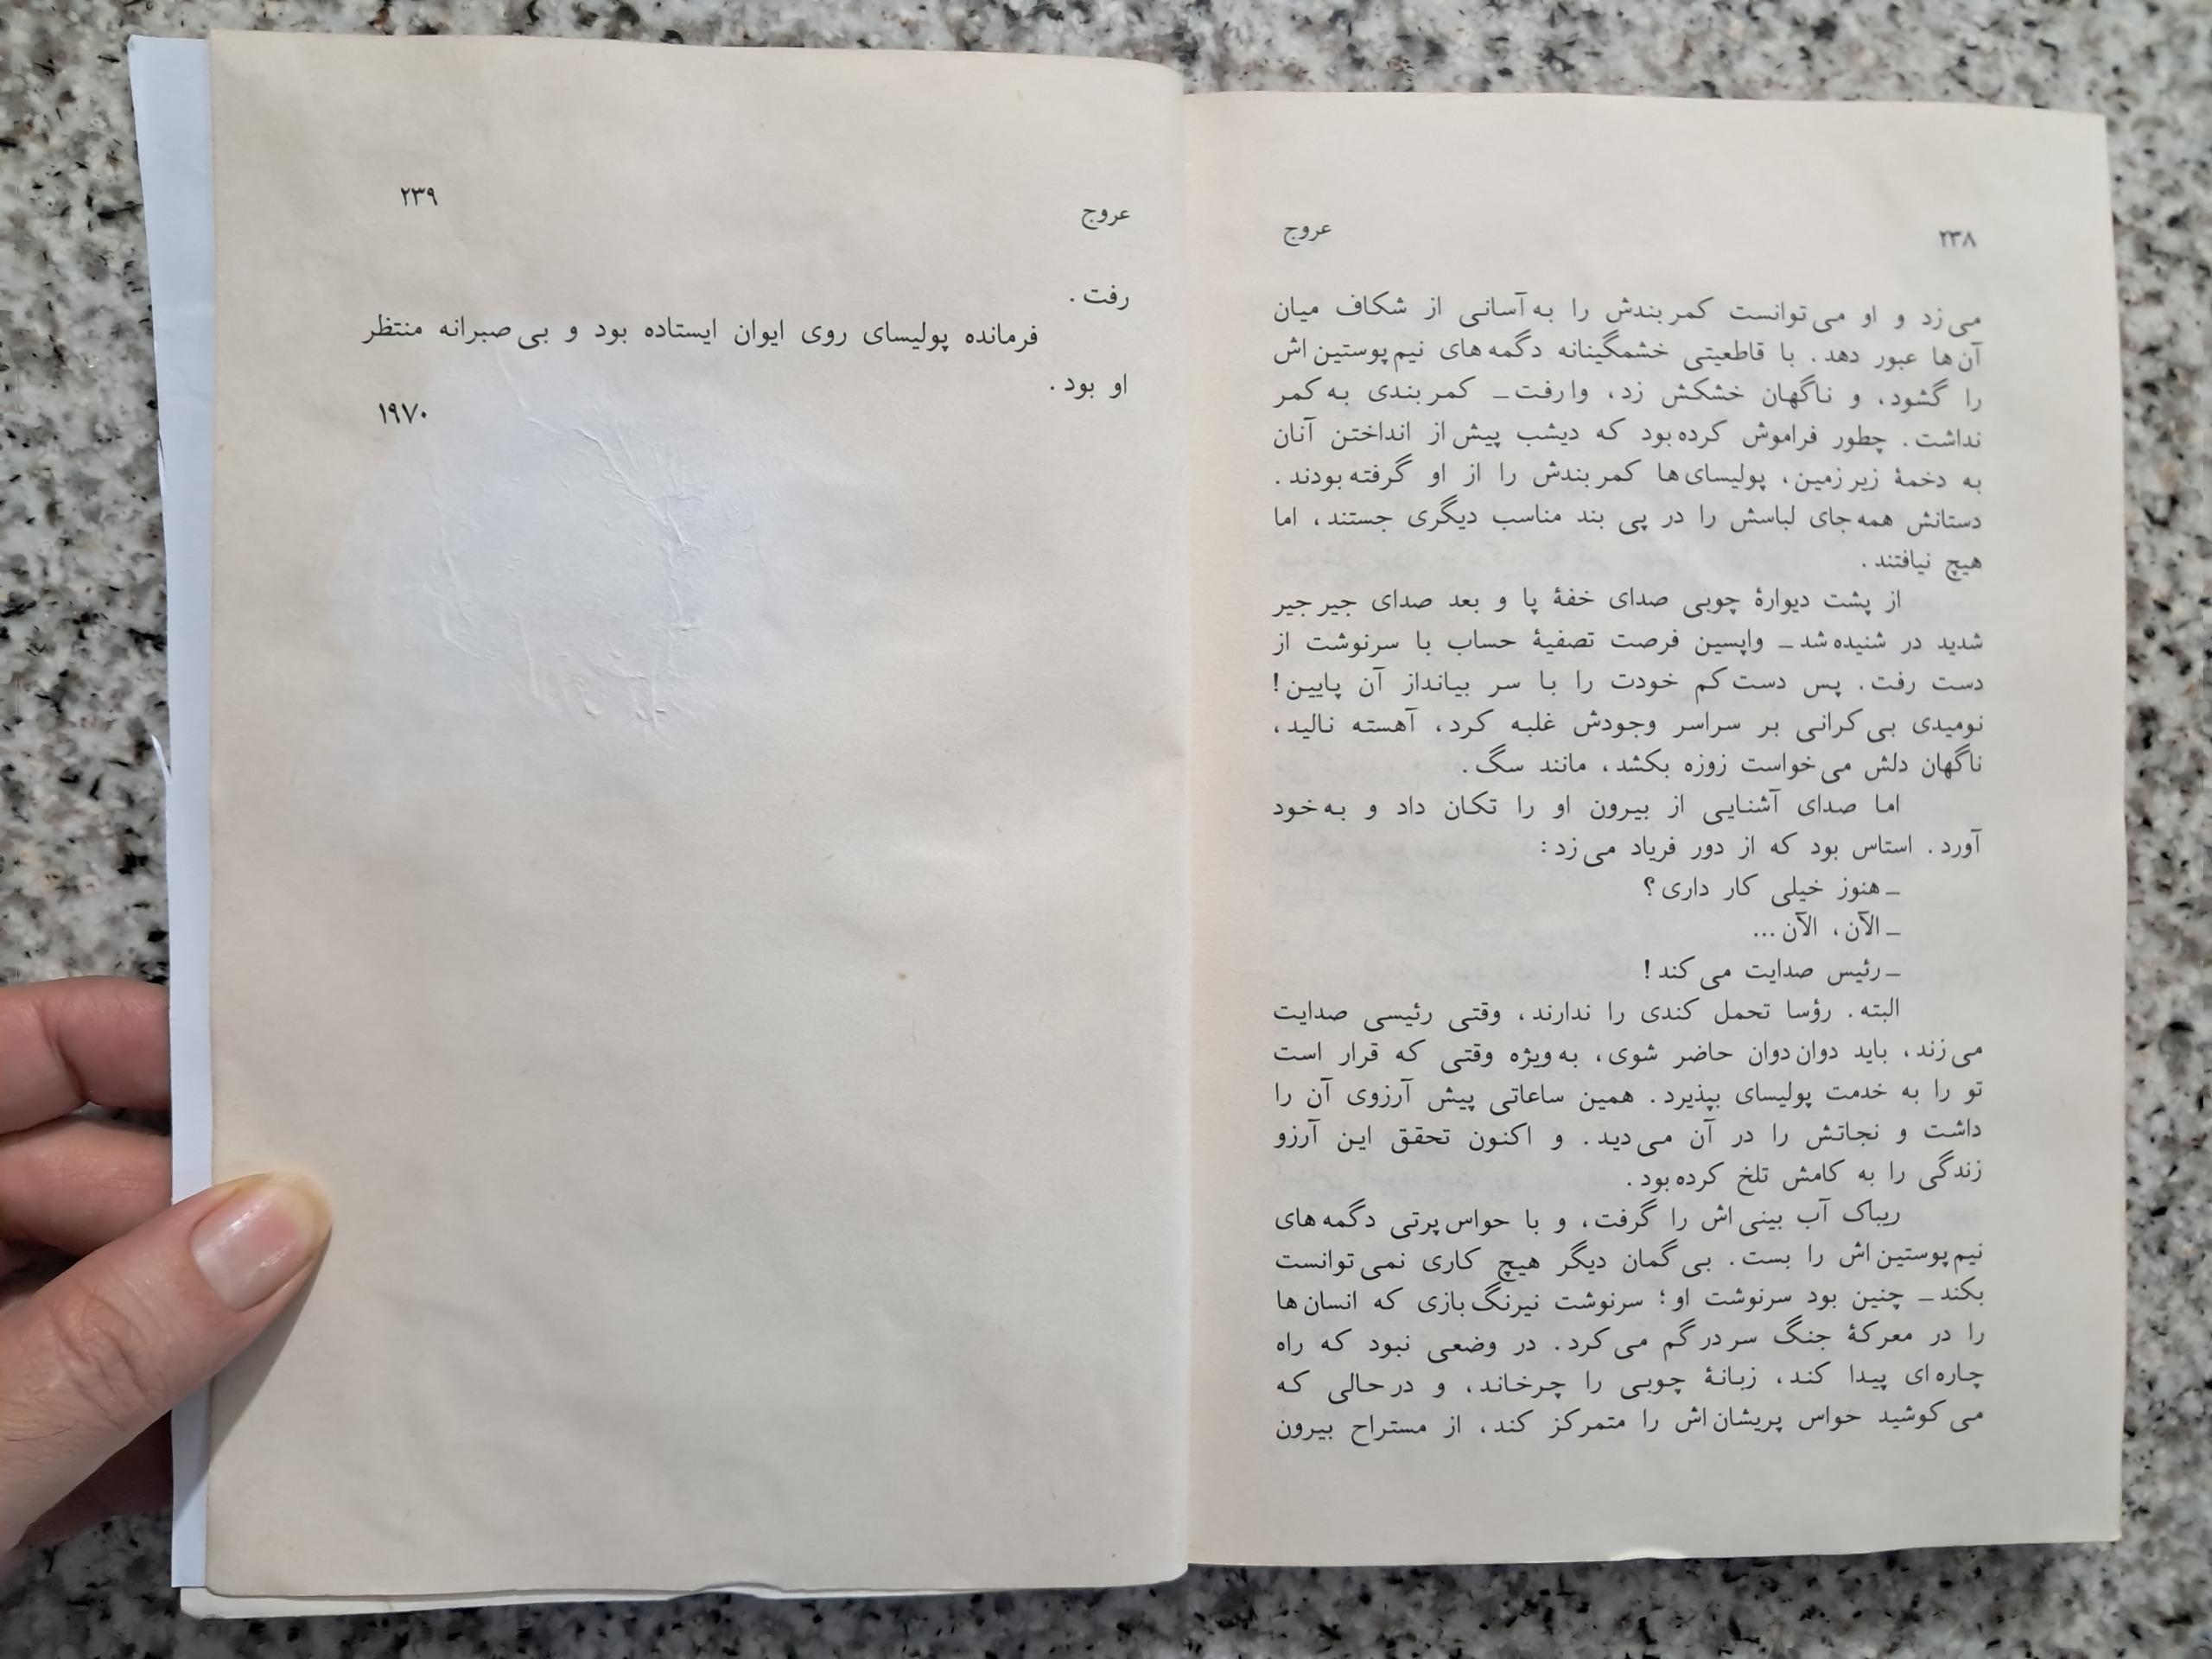 ۲۳۸
عروج
می‌زد و او می‌توانست کمربندش را به‌آسانی از شکاف میان
آن‌ها عبور دهد. با قاطعیتی خشمگینانه دگمه‌های نیم‌پوستین‌اش
را گشود، و ناگهان خشکش زد، وارفت_ کمربندی به‌کمر
نداشت. چطور فراموش کرده‌بود که دیشب پیش‌از انداختن آنان
به دخمهٔ زیرزمین، پولیسای‌ها کمربندش را از او گرفته‌بودند.
دستانش همه‌جای لباسش را در پی بند مناسب دیگری جستند، اما
هیچ نیافتند.
از پشت دیوارهٔ چوبی صدای خفهٔ پا و بعد صدای جیرجیر
شدید در شنیده‌شد_ واپسین فرصت تصفیهٔ حساب با سرنوشت از
دست رفت. پس دست‌کم خودت را با سر بیانداز آن پایین!
نومیدی بی‌کرانی بر سراسر وجودش غلبه کرد، آهسته نالید،
ناگهان دلش می‌خواست زوزه بکشد، مانند سگ.
اما صدای آشنایی از بیرون او را تکان داد و به‌خود
آورد. استاس بود که از دور فریاد می‌زد:
_هنوز خیلی کار داری؟
_الآن، الآن...
_رئیس صدایت می‌کند!
البته. رؤسا تحمل کندی را ندارند، وقتی رئیسی صدایت
می‌زند، باید دوان‌دوان حاضر شوی، به‌ویژه وقتی که قرار است
تو را به خدمت پولیسای بپذیرد. همین ساعاتی پیش آرزوی آن را
داشت و نجاتش را در آن می‌دید. و اکنون تحقق این آرزو
زندگی را به کامش تلخ کرده‌بود.
ریباک آب بینی‌اش را گرفت، و با حواس‌پرتی دگمه‌های
نیم‌پوستین‌اش را بست. بی‌گمان دیگر هیچ کاری نمی‌توانست
بکند_ چنین بود سرنوشت او؛ سرنوشت نیرنگ‌بازی که انسان‌ها
را در معرکهٔ جنگ سردرگم می‌کرد. در وضعی نبود که راه
چاره‌ای پیدا کند، زبانهٔ چوبی را چرخاند، و درحالی که
می‌کوشید حواس پریشان‌اش را متمرکز کند، از مستراح بیرون
عروج
۲۳۹
رفت.
فرمانده پولیسای روی ایوان ایستاده بود و بی‌صبرانه منتظر
او بود.
۱۹۷۰